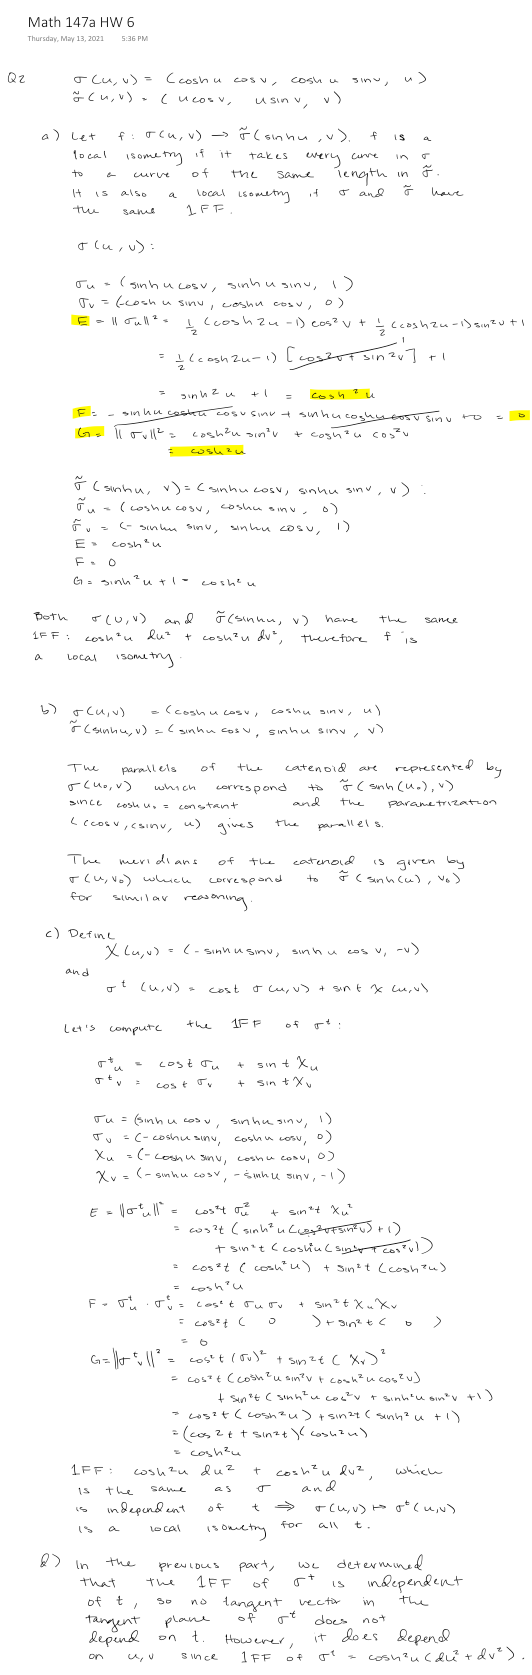 Math 147a HW 6
Thursday, May 13, 2021 5:36 PM
Q2 σ(u,v) = (coshu cosv, coshu sinv, u)
σ̃(u,v) = (ucosv, usinv, v)
a) Let f: σ(u,v) → σ̃(sinhu, v). f is a
local isometry if it takes every curve in σ
to a curve of the same length in σ̃.
It is also a local isometry if σ and σ̃ have
the same 1FF.
σ(u,v):
σu = (sinhu cosv, sinhu sinv, 1)
σv = (-coshu sinv, coshu cosv, 0)
E = ||σu||² = 1/2 (cosh2u-1) cos²v + 1/2 (cosh2u-1) sin²v + 1
= 1/2 (cosh2u-1) [cos²v + sin²v] 1 + 1
= sinh²u + 1 = cosh²u
F = - sinhu coshu cosv sinv + sinhu coshu cosv sinv + 0 = 0
G = ||σv||² = cosh²u sin²v + cosh²u cos²v
= cosh²u
σ̃(sinhu, v) = (sinhu cosv, sinhu sinv, v):
σ̃u = (coshu cosv, coshu sinv, 0)
σ̃v = (- sinhu sinv, sinhu cosv, 1)
E = cosh²u
F = 0
G = sinh²u + 1 = cosh²u
Both σ(u,v) and σ̃(sinhu, v) have the same
1FF: cosh²u du² + cosh²u dv², therefore f is
a local isometry.
b) σ(u,v) = (coshu cosv, coshu sinv, u)
σ̃(sinhu,v) = (sinhu cosv, sinhu sinv, v)
The parallels of the catenoid are represented by
σ(u₀,v) which correspond to σ̃(sinh(u₀),v)
since coshu₀ = constant and the parametrization
(ccosv, csinv, u) gives the parallels.
The meridians of the catenoid is given by
σ(u,v₀) which correspond to σ̃(sinh(u), v₀)
for similar reasoning.
c) Define
X(u,v) = (-sinhu sinv, sinhu cos v, -v)
and
σᵗ(u,v) = cost σ(u,v) + sint X(u,v)
Let's compute the 1FF of σᵗ:
σᵗu = cost σu + sint Xu
σᵗv = cost σv + sint Xv
σu = (sinhu cosv, sinhu sinv, 1)
σv = (-coshu sinv, coshu cosv, 0)
Xu = (-coshu sinv, coshu cosv, 0)
Xv = (-sinhu cosv, -sinhu sinv, -1)
E = ||σᵗu||² = cos²t σu² + sin²t Xu²
= cos²t (sinh²u (cos²v+sin²v) + 1)
+ sin²t (cosh²u (sin²v + cos²v))
= cos²t (cosh²u) + sin²t (cosh²u)
= cosh²u
F = σᵗu · σᵗv = cos²t σuσv + sin²t XuXv
= cos²t ( 0 ) + sin²t ( 0 )
= 0
G = ||σᵗv||² = cos²t (σv)² + sin²t (Xv)²
= cos²t (cosh²u sin²v + cosh²u cos²v)
+ sin²t (sinh²u cos²v + sinh²u sin²v + 1)
= cos²t (cosh²u) + sin²t (sinh²u + 1)
= (cos2t + sin2t)(cosh²u)
= cosh²u
1FF: cosh²u du² + cosh²u dv², which
is the same as σ and
is independent of t ⇒ σ(u,v) ↦ σᵗ(u,v)
is a local isometry for all t.
d) In the previous part, we determined
that the 1FF of σᵗ is independent
of t, so no tangent vector in the
tangent plane of σᵗ does not
depend on t. However, it does depend
on u,v since 1FF of σᵗ = cosh²u(du²+dv²).